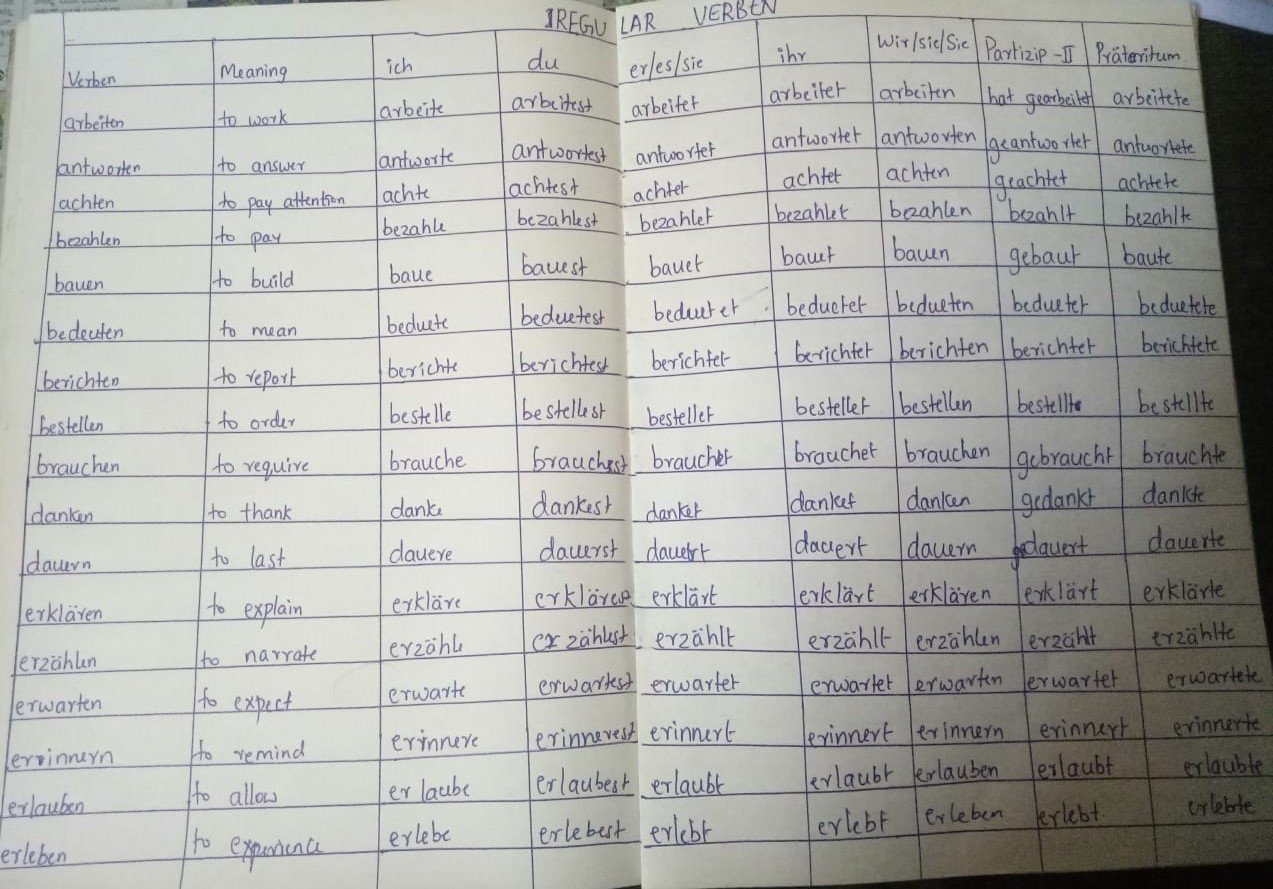 IREGULAR VERBEN
Verben Meaning ich du er/es/sie ihr Wir/sie/Sie Partizip-II Präteritum
arbeiten to work arbeite arbeitest arbeitet arbeitet arbeiten hat gearbeitet arbeitete
antworten to answer antworte antwortest antwortet antwortet antworten geantwortet antwortete
achten to pay attention achte achtest achtet achtet achten geachtet achtete
bezahlen to pay bezahle bezahlest bezahlet bezahlet bezahlen bezahlt bezahlte
bauen to build baue bauest bauet bauet bauen gebaut baute
bedeuten to mean beduete beduetest beduetet beduetet bedueten beduetet beduetete
berichten to report berichte berichtest berichtet berichtet berichten berichtet berichtete
bestellen to order bestelle bestellest bestellet bestellet bestellen bestellte bestellte
brauchen to require brauche brauchest brauchet brauchet brauchen gebraucht brauchte
danken to thank danke dankest danket danket danken gedankt dankte
dauern to last dauere dauerst dauert dauert dauern gedauert dauerte
erklären to explain erkläre erklärt erklärt erklären erklärt erklärte
erzählen to narrate erzähle erzählest erzählt erzählt erzählen erzählt erzählte
erwarten to expect erwarte erwartest erwartet erwartet erwarten erwartet erwartete
errinnern to remind erinnere erinnerest erinnert erinnert erinnern erinnert erinnerte
erlauben to allow erlaube erlaubest erlaubt erlaubt erlauben erlaubt erlaubte
erleben to experience erlebe erlebest erlebt erlebt erleben erlebt erlebte